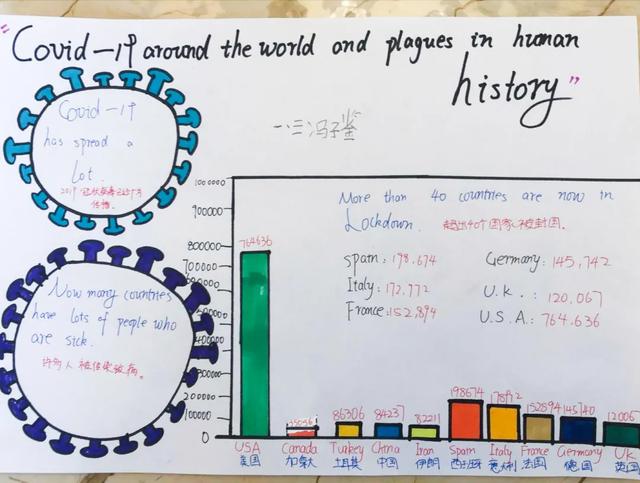 "Covid-19 around the world and plagues in human
history"
一、三 冯子鉴
Covid-19
has spread a
lot.
Now many countries
have lots of people who
are sick.
More than 40 countries are now in
Lockdown. 超出40个国家被封国。
Spain: 198.674
Germany: 145,742
Italy: 172.772
U.K.: 120,067
France: 152,894
U.S.A: 764.636
1000000
900000
800000
700000
600000
200000
100000
0
764636
86306
84237
82211
198674
152894
145740
12006
USA
Canada
Turkey
China
Iran
Spain
Italy
France
Germany
U.K
美国
加拿大
土耳其
中国
伊朗
西班牙
意大利
法国
德国
英国